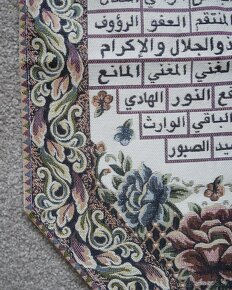 المنتقم العفو الرؤوف
ذو الجلال والإكرام
الغني المغني المانع
النور الهادي
الباقي الوارث
الصبور